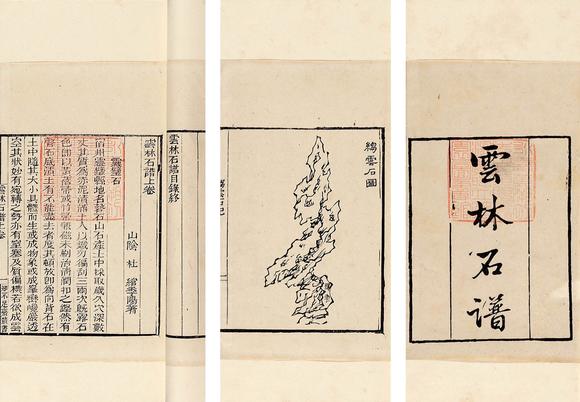 雲林石譜
縐雲石圖
雲林石譜目錄終
雲林石譜上卷
山陰 杜 綰季陽著
靈璧石
宿州靈璧縣地名磬石山石產土中採取歲久穴深數
丈其質為赤泥漬滿土人以鐵刃徧刮三兩次既露石
色即以黃蓓帚或竹帚兼磁末刷治清潤扣之鏗然有
聲石底漬土有不能盡去者度其頓放即為向背石在
土中隨其大小具體而生或成物象或成峯巒巉巖透
空其狀妙有宛轉之勢亦有窒塞及質偏樸若欲成雲
雲林石譜上卷 一 知不足齋叢書